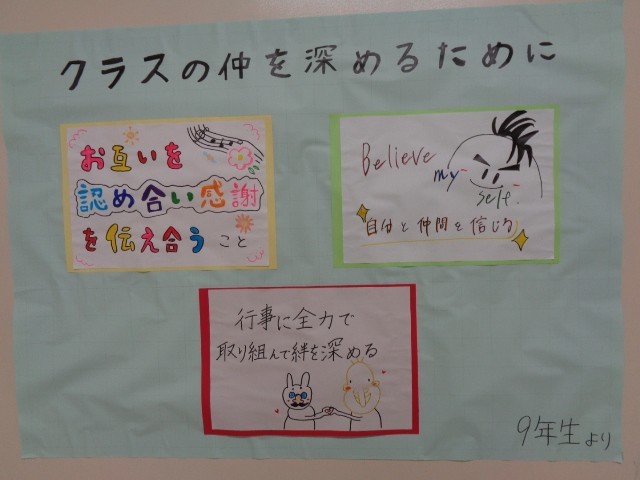 クラスの仲を深めるために
お互いを
認め合い感謝
を伝え合うこと
Believe
my
self.
自分と仲間を信じる
行事に全力で
取り組んで絆を深める
9年生より